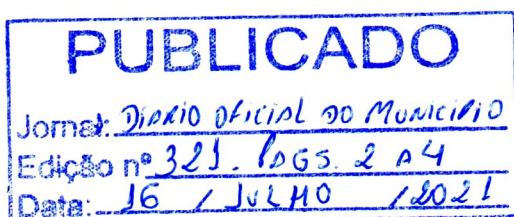 PUBLICADO
Jornal: DIARIO OFICIAL DO MUNICIPIO
Edição nº 321. PAGS. 2 A 4
Data: 16 / JULHO / 2021